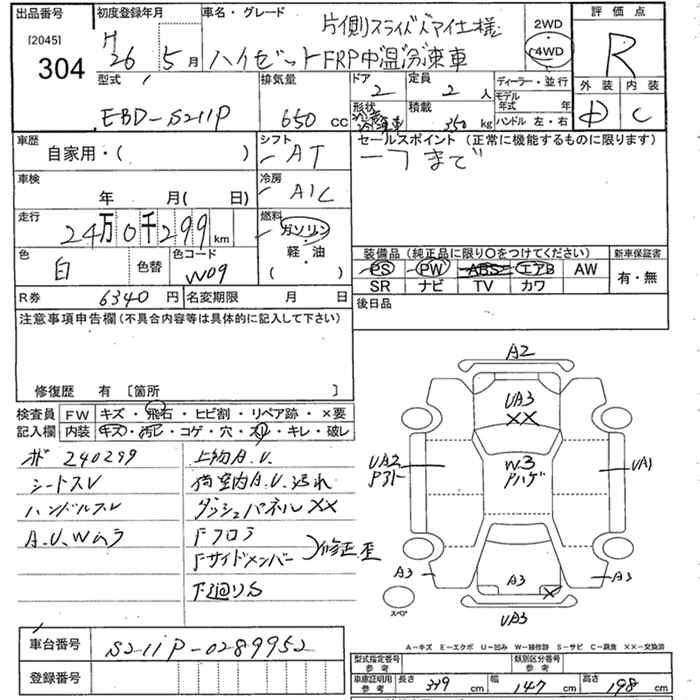 出品番号 初度登録年月 車名・グレード 片側スライドドア仕様 2WD 評価点
[2045] H 26 5月 ハイゼット FRP中温冷凍車 4WD R
304
型式 排気量 ドア 2 定員 2 人 ディーラー・並行 外装 内装
EBD-S211P 650 cc 形状 冷蔵冷凍車 積載 350 kg モデル年式 年 D C
ハンドル 左・右
車歴 自家用・( ) シフト AT セールスポイント (正常に機能するものに限ります)
車検 年 月( 日) 冷房 A/C
走行 24万0千299 km 燃料 ガソリン 軽・油 ( ・ )
色 白 色替 色コード W09
装備品 (純正品に限り〇をつけてください) 新車保証書
PS PW ABS エアB AW 有・無
SR ナビ TV カワ
R券 6340 円 名変期限 月 日 後日品
注意事項申告欄 (不具合内容等は具体的に記入して下さい)
修復歴 有 〔箇所 〕
検査員 FW キズ・飛石・ヒビ割・リペア跡・×要
記入欄 内装 キズ・汚レ・コゲ・穴・スレ・キレ・破レ
ボ 240299 上物A.U.
シートスレ 荷室内A.U.汚れ
ハンドルスレ ダッシュパネル××
A.U.Wムラ Fフロア
Fサイドメンバー 修正歪
下廻りS
A2
UA3
××
UA2 Pアト W3 Pハゲ UA1
A3 A3 A3
×
スペア UA3
A-キズ E-エクボ U-凹み W-補修跡 S-サビ C-腐食 ××-交換済
車台番号 S211P-0289952
登録番号
型式指定番号 参考 類別区分番号 参考
車庫証明用 参考 長さ 339 cm 幅 147 cm 高さ 198 cm